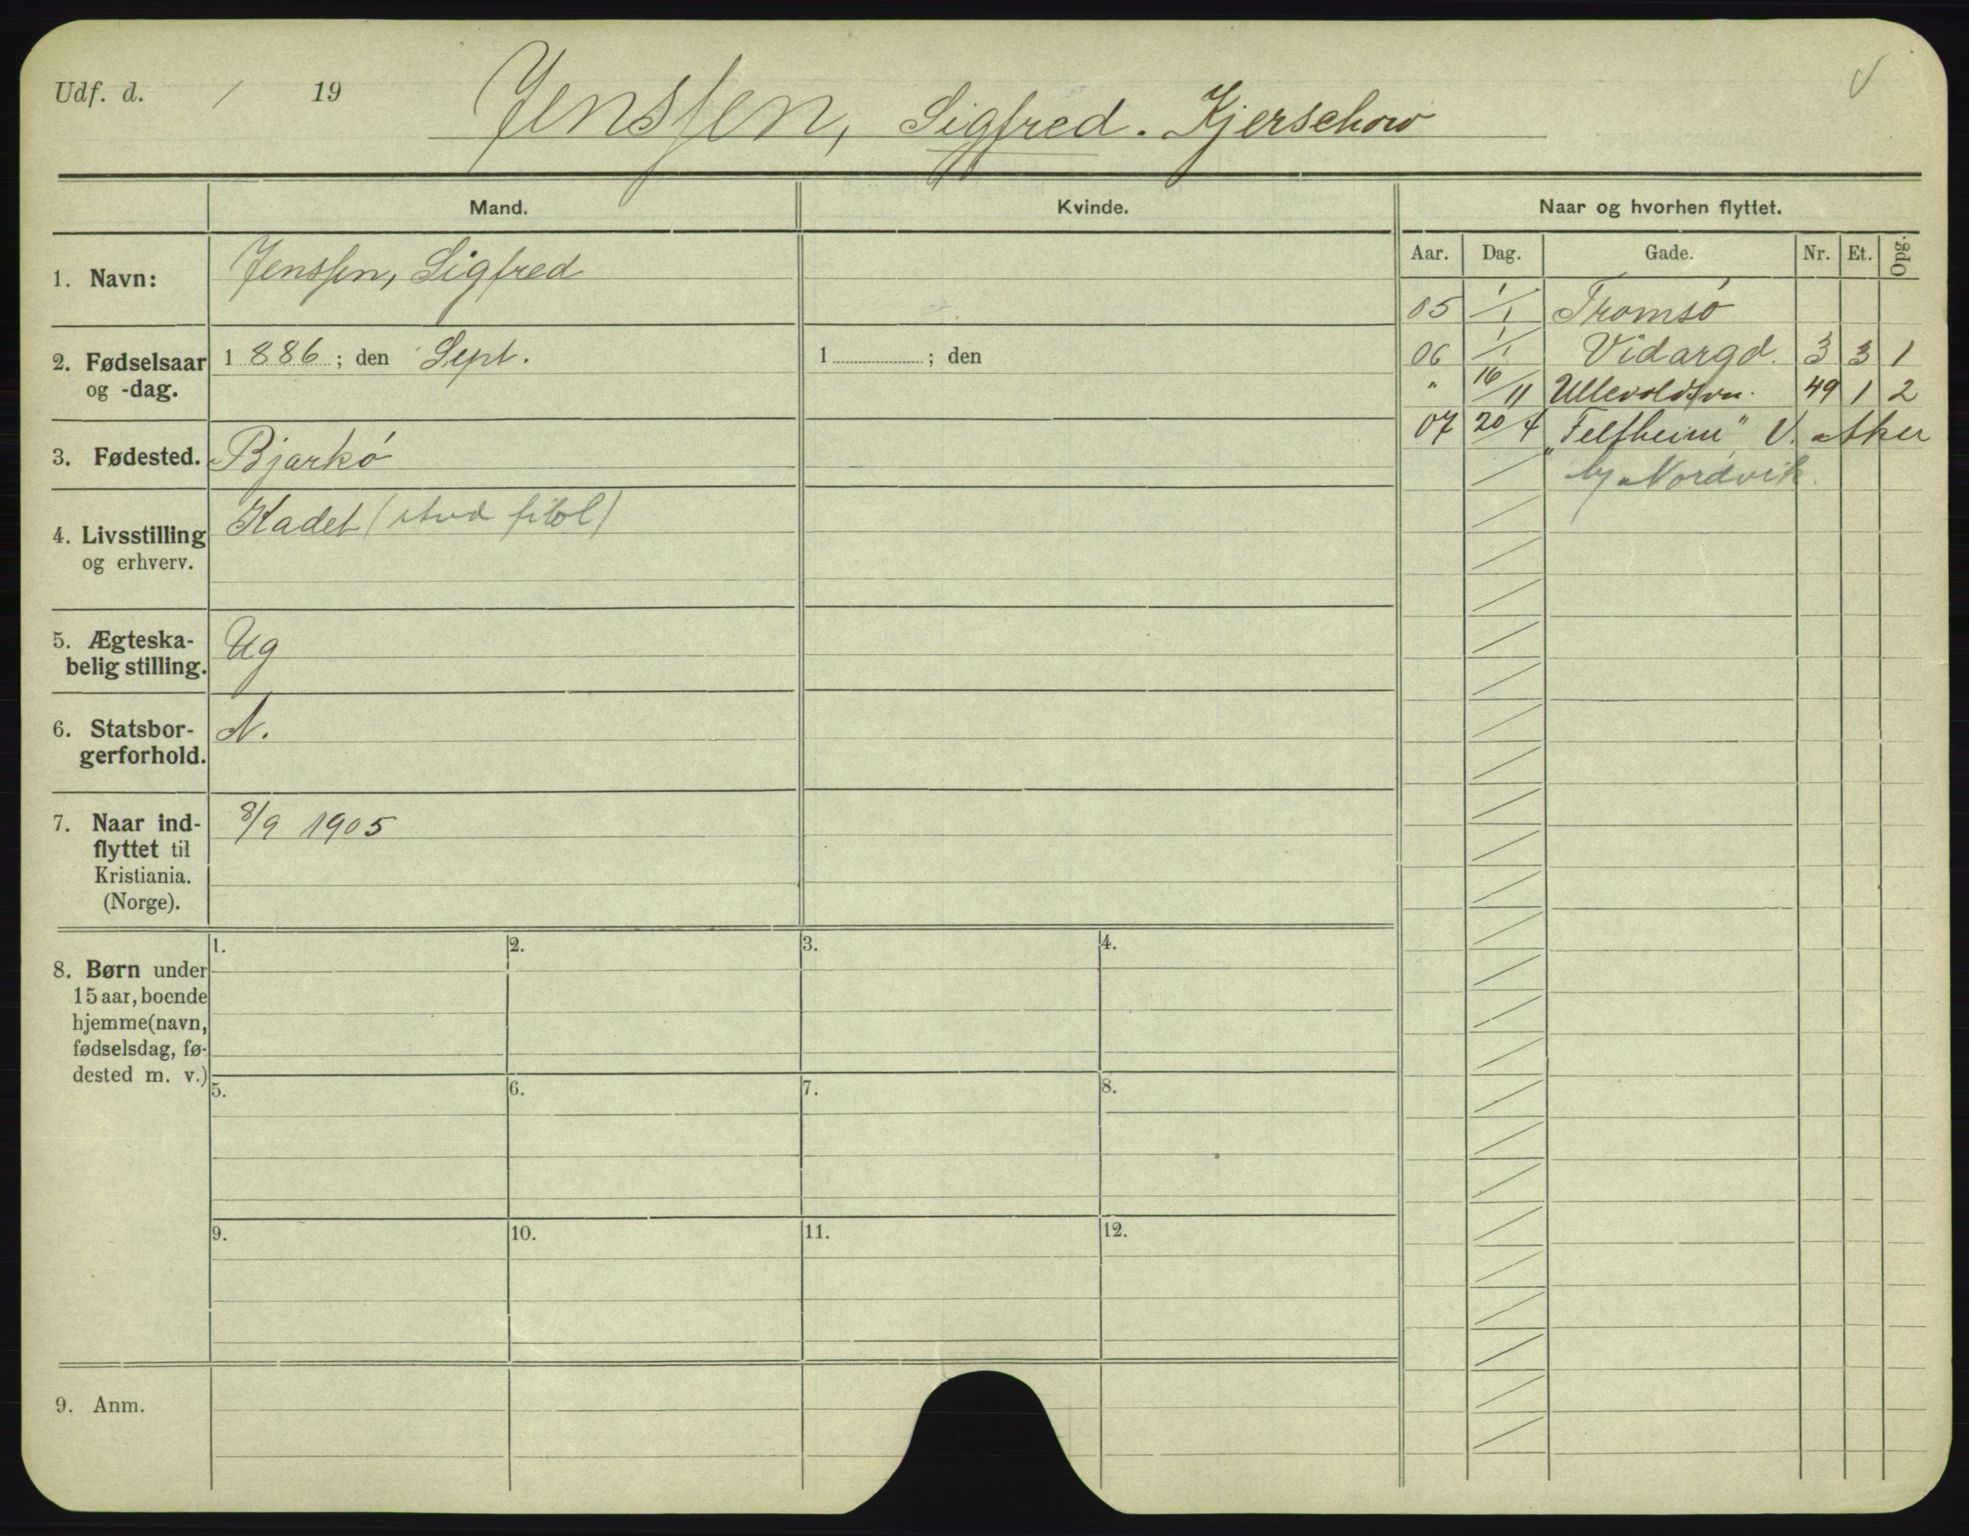 Udf. d. / 19
Jenssen, Sigfred. Kjerschow
Mand. Kvinde. Naar og hvorhen flyttet.
Aar. Dag. Gade. Nr. Et. Opg.
1. Navn: Jenssen, Sigfred
2. Fødselsaar og -dag. 1886; den Sept. 1 ; den
3. Fødested. Bjarkö
4. Livsstilling og erhverv. Kadet (stud filol)
5. Ægteska-
belig stilling. Ug
6. Statsbor-
gerforhold. N.
7. Naar ind-
flyttet til
Kristiania.
(Norge). 8/9 1905
8. Børn under
15 aar, boende
hjemme (navn,
fødselsdag, fø-
dested m. v.)
1. 2. 3. 4.
5. 6. 7. 8.
9. 10. 11. 12.
9. Anm.
05 1/1 Tromsö
06 1/1 Vidargd. 3 3 1
" 16/11 Ullevoldsvn. 49 1 2
07 20/4 "Felfheim" V. Aker
by Nordvik.